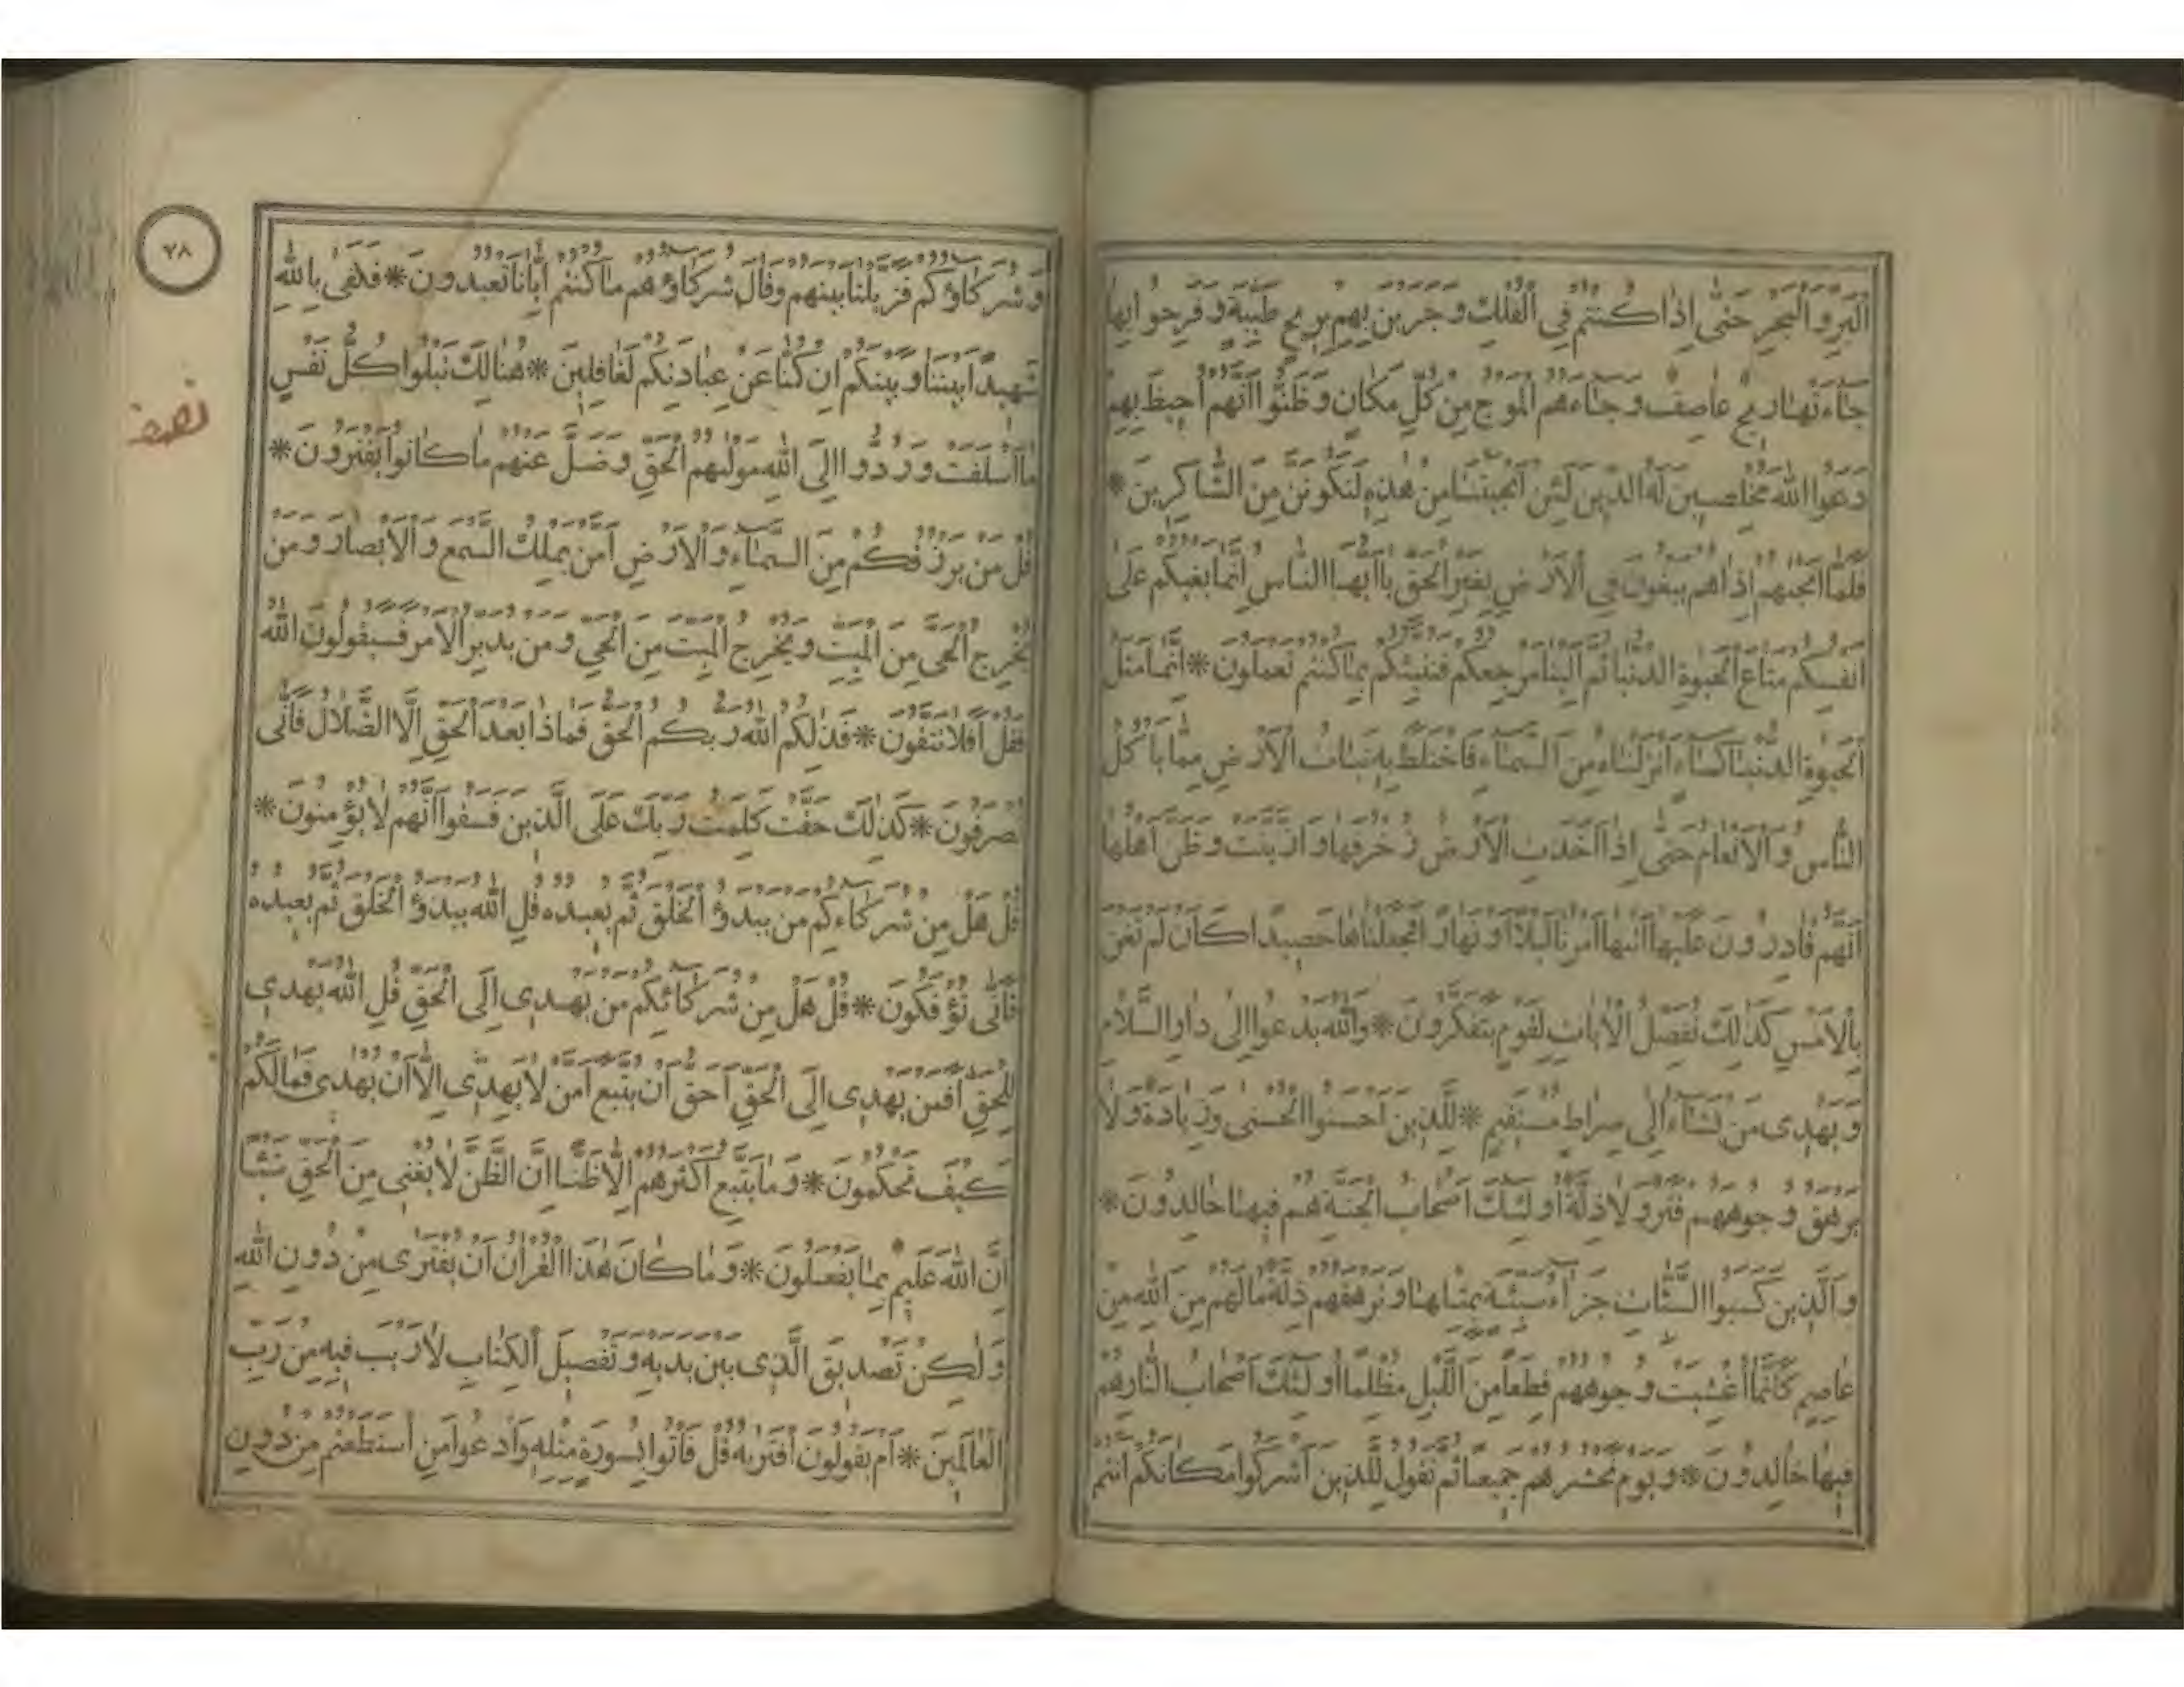 البر والبحر حتى إذا كنتم في الفلك وجرين بهم بريح طيبة وفرحوا بها
جاءتها ريح عاصف وجاءهم الموج من كل مكان وظنوا أنهم أحيط بهم
دعوا الله مخلصين له الدين لئن أنجيتنا من هذه لنكونن من الشاكرين *
فلما أنجيهم إذا هم يبغون في الأرض بغير الحق يا أيها الناس إنما بغيكم على
أنفسكم متاع الحيوة الدنيا ثم إلينا مرجعكم فننبئكم بما كنتم تعملون * إنما مثل
الحيوة الدنيا كماء أنزلناه من السماء فاختلط به نبات الأرض مما يأكل
الناس والأنعام حتى إذا أخذت الأرض زخرفها وازينت وظن أهلها
أنهم قادرون عليها أتيها أمرنا ليلا أو نهارا فجعلناها حصيدا كان لم تغن
بالأمس كذلك نفصل الآيات لقوم يتفكرون * والله يدعوا إلى دار السلام
ويهدي من يشاء إلى صراط مستقيم * للذين أحسنوا الحسنى وزيادة ولا
يرهق وجوههم قتر ولا ذلة أولئك أصحاب الجنة هم فيها خالدون *
والذين كسبوا السيئات جزاء سيئة بمثلها وترهقهم ذلة ما لهم من الله من
عاصم كأنما أغشيت وجوههم قطعا من الليل مظلما أولئك أصحاب النار هم
فيها خالدون * ويوم نحشرهم جميعا ثم نقول للذين أشركوا مكانكم أنتم
٧٨
وشركاؤكم فزيلنا بينهم وقال شركاؤهم ما كنتم إيانا تعبدون * فكفى بالله
شهيدا بيننا وبينكم إن كنا عن عبادتكم لغافلين * هنالك تبلوا كل نفس
نصف
ما أسلفت وردوا إلى الله موليهم الحق وضل عنهم ما كانوا يفترون *
قل من يرزقكم من السماء والأرض أمن يملك السمع والأبصار ومن
يخرج الحي من الميت ويخرج الميت من الحي ومن يدبر الأمر فسيقولون الله
فقل أفلا تتقون * فذلكم الله ربكم الحق فماذا بعد الحق إلا الضلال فأنى
تصرفون * كذلك حقت كلمت ربك على الذين فسقوا أنهم لا يؤمنون *
قل هل من شركاءكم من يبدؤ الخلق ثم يعيده قل الله يبدؤ الخلق ثم يعيده
فأنى تؤفكون * قل هل من شركائكم من يهدي إلى الحق قل الله يهدي
للحق أفمن يهدي إلى الحق أحق أن يتبع أمن لا يهدي إلا أن يهدى فما لكم
كيف تحكمون * وما يتبع أكثرهم إلا ظنا إن الظن لا يغني من الحق شيئا
إن الله عليم بما يفعلون * وما كان هذا القرآن أن يفترى من دون الله
ولكن تصديق الذي بين يديه وتفصيل الكتاب لا ريب فيه من رب
العالمين * أم يقولون افتريه قل فأتوا بسورة مثله وادعوا من استطعتم من دون